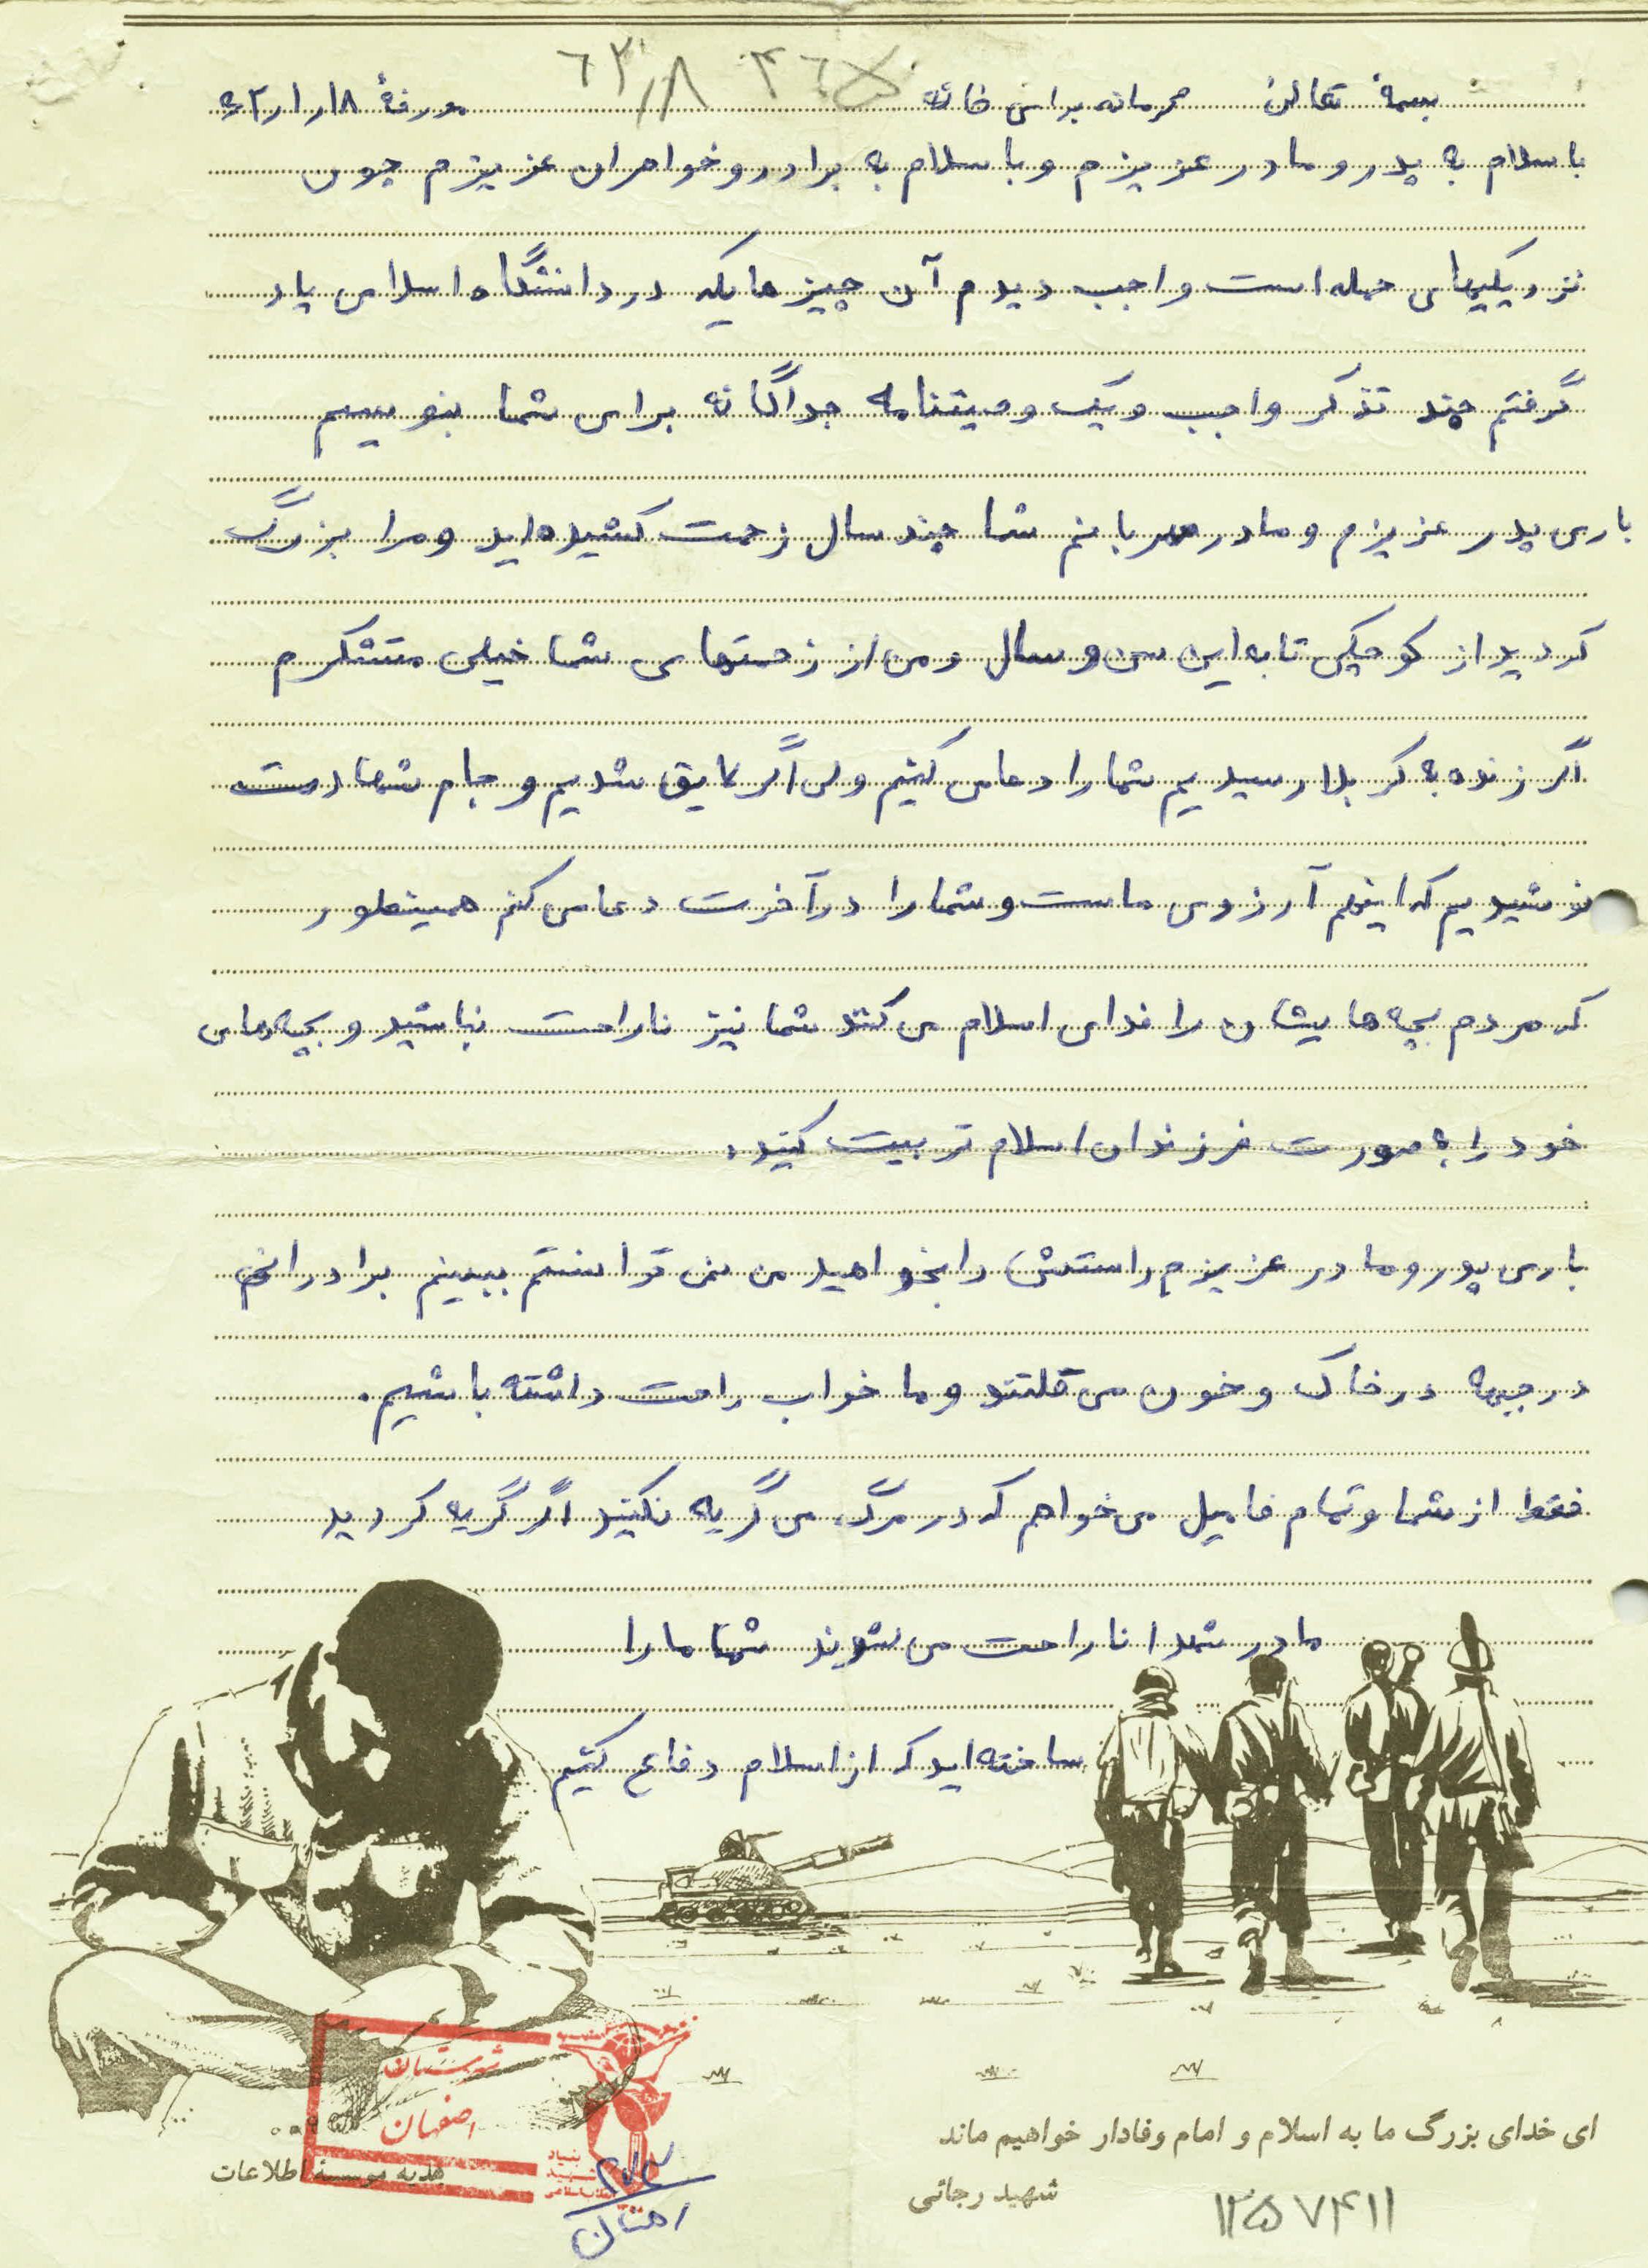 ۶۳/۸
بسمه تعالی محرمانه برای خانه مورخهٔ ۱۸/۱/
با سلام به پدر و مادر عزیزم و با سلام به برادر و خواهران عزیزم چون
نزدیکیهای حمله است واجب دیدم آن چیزهایکه در دانشگاه اسلامی یاد
گرفتم چند تذکر واجب و یک وصیتنامه جداگانه برای شما بنویسیم
باری پدر عزیزم و مادر مهربانم شما چند سال زحمت کشیده‌اید و مرا بزرگ
کردید از کوچکی تا به این سن و سال و من از زحمتهای شما خیلی متشکرم
اگر زنده به کربلا رسیدیم شما را دعا می کنیم ولی اگر لایق شدیم و جام شهادت
نوشیدیم که اینهم آرزوی ماست و شما را در آخرت دعا می کنم همینطور
که مردم بچه هایشان را فدای اسلام می کنند شما نیز ناراحت نباشید و بچه‌های
خود را به صورت فرزندان اسلام تربیت کنید.
باری پدر و مادر عزیزم راستش را بخواهید من نمی توانستم ببینم برادرانم
در جبهه در خاک و خون می قلتند و ما خواب راحت داشته باشیم.
فقط از شما و تمام فامیل می خواهم که در مرگ من گریه نکنید اگر گریه کردید
مادر شهدا ناراحت می شوند شما ما را
ساخته اید که از اسلام دفاع کنیم
ای خدای بزرگ ما به اسلام و امام وفادار خواهیم ماند
شهید رجائی
هدیه موسسه اطلاعات
شهرستان
اصفهان
بنیاد
شهید
انقلاب اسلامی
۱۳۵۷۴۱۱